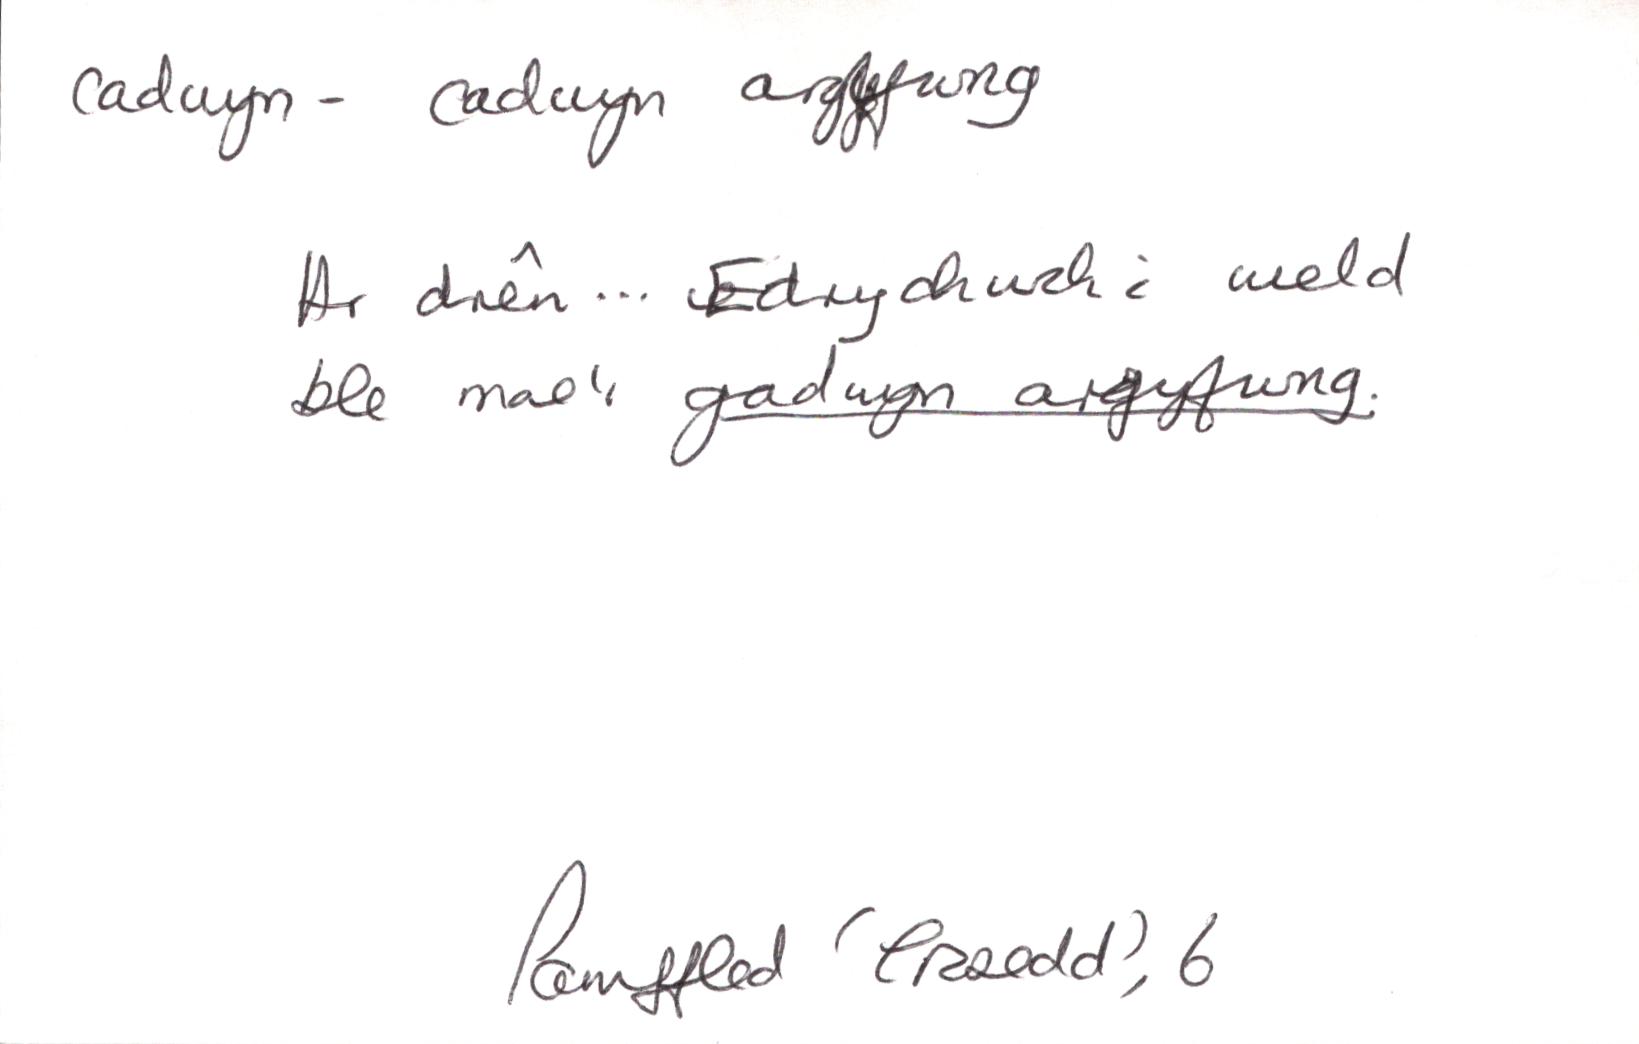 cadwyn - cadwyn argyfwng
Ar drên... Edrychwch i weld
ble mae'r gadwyn argyfwng.
Pamffled 'Croeseddd', 6